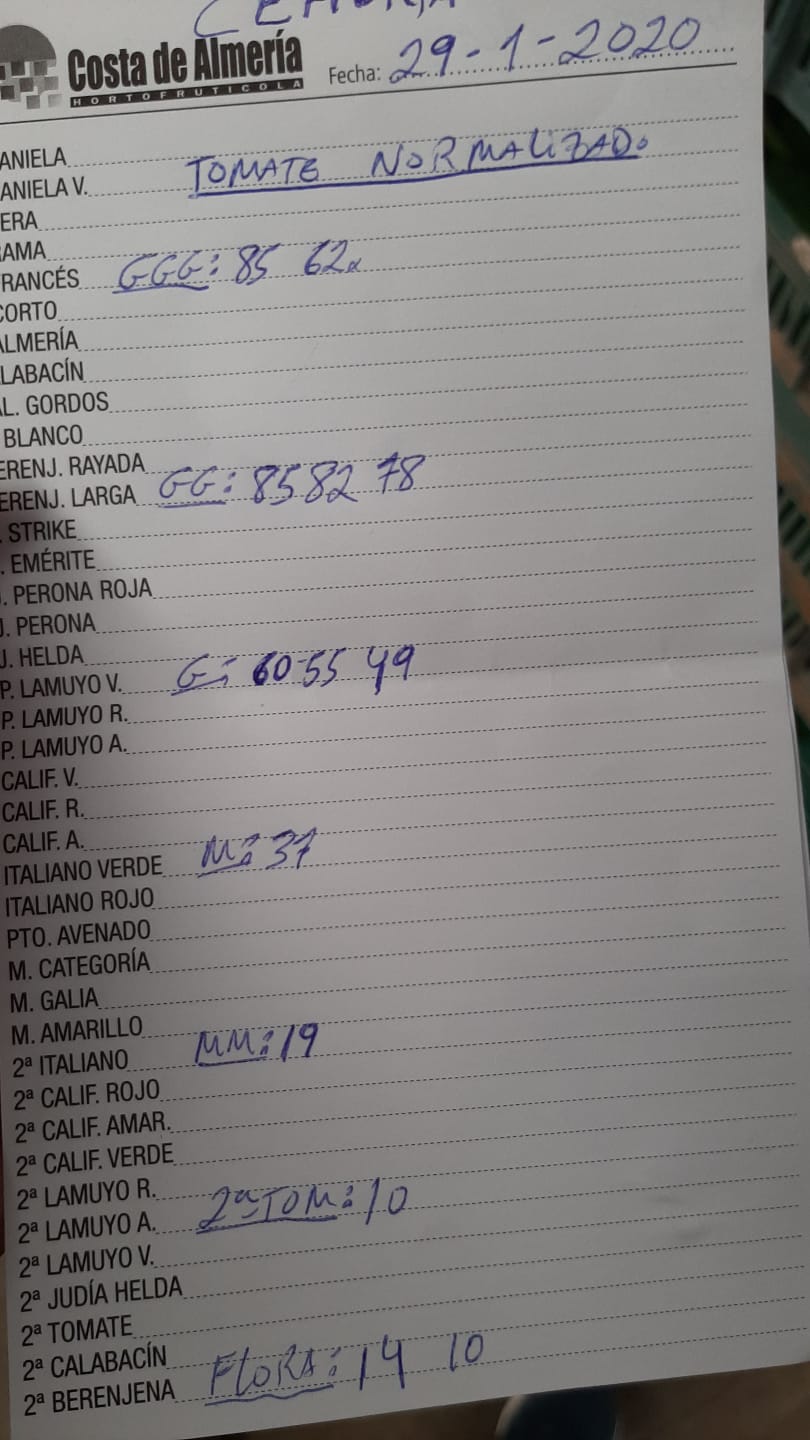 Costa de Almería
HORTOFRUTICOLA
Fecha: 29-1-2020
ANIELA
TOMATE NORMALIZADO
ANIELA V.
ERA
AMA
RANCÉS GGG: 85 62
CORTO
ALMERÍA
LABACÍN
AL. GORDOS
BLANCO
ERENJ. RAYADA
ERENJ. LARGA GG: 85 82 78
. STRIKE
. EMÉRITE
. PERONA ROJA
J. PERONA
J. HELDA
P. LAMUYO V. G: 60 55 49
P. LAMUYO R.
P. LAMUYO A.
CALIF. V.
CALIF. R.
CALIF. A.
ITALIANO VERDE M: 37
ITALIANO ROJO
PTO. AVENADO
M. CATEGORÍA
M. GALIA
M. AMARILLO
2ª ITALIANO MM: 19
2ª CALIF. ROJO
2ª CALIF. AMAR.
2ª CALIF. VERDE
2ª LAMUYO R.
2ª LAMUYO A. 2ª TOM: 10
2ª LAMUYO V.
2ª JUDÍA HELDA
2ª TOMATE
2ª CALABACÍN
2ª BERENJENA FLORA: 14 10